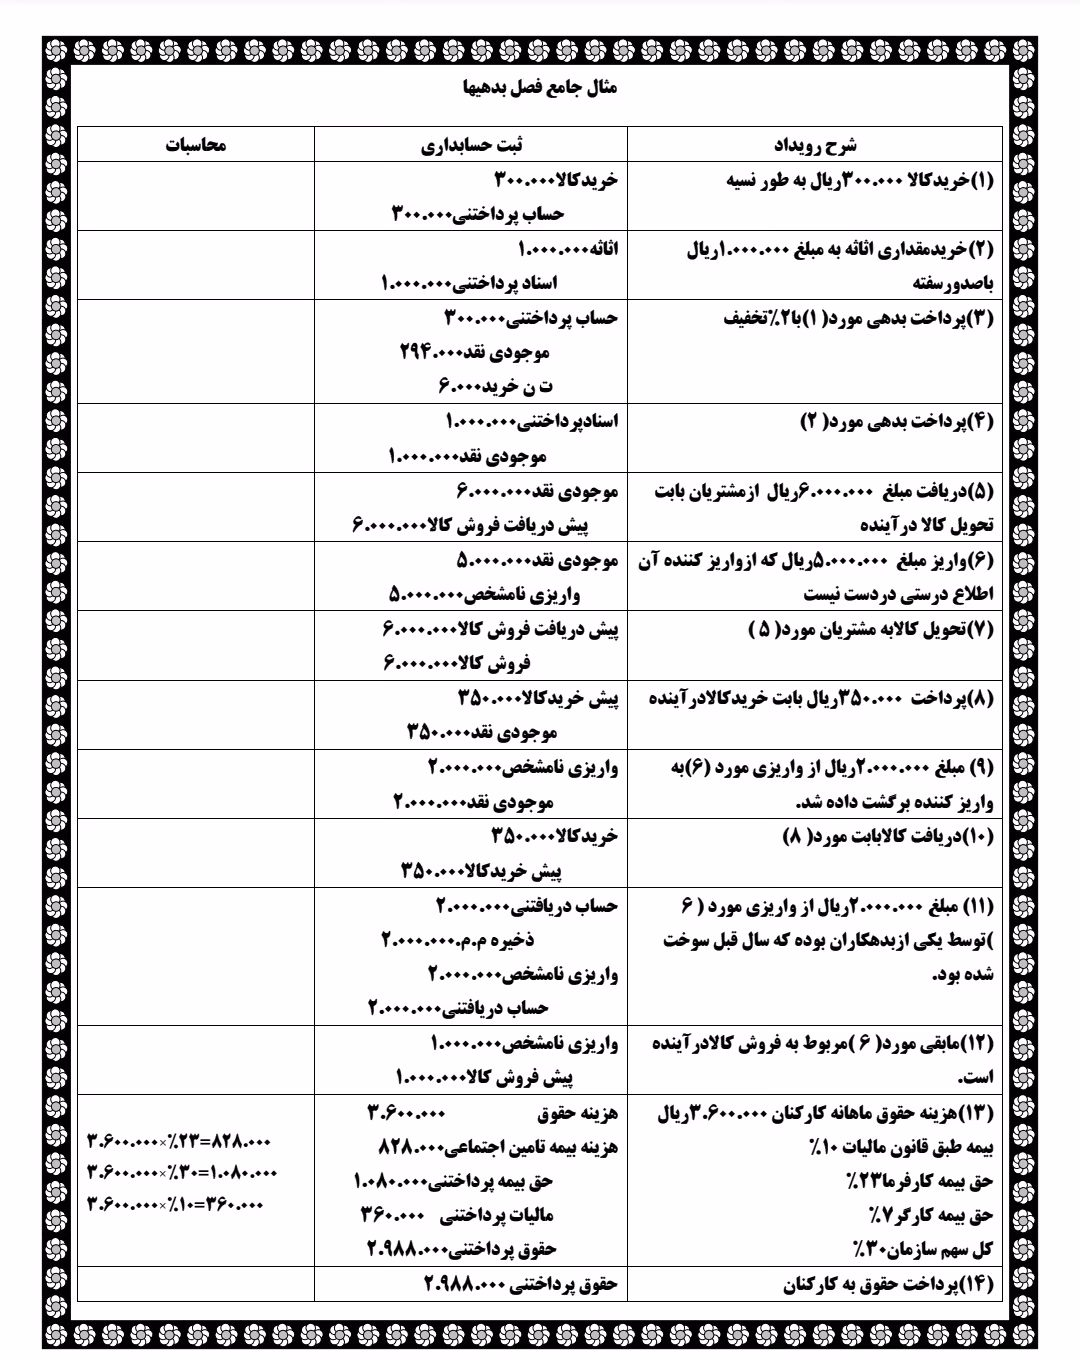 مثال جامع فصل بدهیها
شرح رویداد
ثبت حسابداری
محاسبات
(۱)خریدکالا ۳۰۰.۰۰۰ریال به طور نسیه
خریدکالا۳۰۰.۰۰۰
حساب پرداختنی۳۰۰.۰۰۰
(۲)خریدمقداری اثاثه به مبلغ ۱.۰۰۰.۰۰۰ریال
باصدورسفته
اثاثه۱.۰۰۰.۰۰۰
اسناد پرداختنی۱.۰۰۰.۰۰۰
(۳)پرداخت بدهی مورد( ۱)با۲٪تخفیف
حساب پرداختنی۳۰۰.۰۰۰
موجودی نقد۲۹۴.۰۰۰
ت ن خرید۶.۰۰۰
(۴)پرداخت بدهی مورد( ۲)
اسنادپرداختنی۱.۰۰۰.۰۰۰
موجودی نقد۱.۰۰۰.۰۰۰
(۵)دریافت مبلغ ۶.۰۰۰.۰۰۰ریال ازمشتریان بابت
تحویل کالا درآینده
موجودی نقد۶.۰۰۰.۰۰۰
پیش دریافت فروش کالا۶.۰۰۰.۰۰۰
(۶)واریز مبلغ ۵.۰۰۰.۰۰۰ریال که ازواریز کننده آن
اطلاع درستی دردست نیست
موجودی نقد۵.۰۰۰.۰۰۰
واریزی نامشخص۵.۰۰۰.۰۰۰
(۷)تحویل کالابه مشتریان مورد( ۵ )
پیش دریافت فروش کالا۶.۰۰۰.۰۰۰
فروش کالا۶.۰۰۰.۰۰۰
(۸)پرداخت ۳۵۰.۰۰۰ریال بابت خریدکالادرآینده
پیش خریدکالا۳۵۰.۰۰۰
موجودی نقد۳۵۰.۰۰۰
(۹) مبلغ ۲.۰۰۰.۰۰۰ریال از واریزی مورد (۶)به
واریز کننده برگشت داده شد.
واریزی نامشخص۲.۰۰۰.۰۰۰
موجودی نقد۲.۰۰۰.۰۰۰
(۱۰)دریافت کالابابت مورد( ۸)
خریدکالا۳۵۰.۰۰۰
پیش خریدکالا۳۵۰.۰۰۰
(۱۱) مبلغ ۲.۰۰۰.۰۰۰ریال از واریزی مورد ( ۶
)توسط یکی ازبدهکاران بوده که سال قبل سوخت
شده بود.
حساب دریافتنی۲.۰۰۰.۰۰۰
ذخیره م.م.۲.۰۰۰.۰۰۰
واریزی نامشخص۲.۰۰۰.۰۰۰
حساب دریافتنی۲.۰۰۰.۰۰۰
(۱۲)مابقی مورد( ۶ )مربوط به فروش کالادرآینده
است.
واریزی نامشخص۱.۰۰۰.۰۰۰
پیش فروش کالا۱.۰۰۰.۰۰۰
(۱۳)هزینه حقوق ماهانه کارکنان ۳.۶۰۰.۰۰۰ریال
بیمه طبق قانون مالیات ۱۰٪
حق بیمه کارفرما۲۳٪
حق بیمه کارگر۷٪
کل سهم سازمان۳۰٪
هزینه حقوق ۳.۶۰۰.۰۰۰
هزینه بیمه تامین اجتماعی۸۲۸.۰۰۰
حق بیمه پرداختنی۱.۰۸۰.۰۰۰
مالیات پرداختنی ۳۶۰.۰۰۰
حقوق پرداختنی۲.۹۸۸.۰۰۰
۳.۶۰۰.۰۰۰×٪۲۳=۸۲۸.۰۰۰
۳.۶۰۰.۰۰۰×٪۳۰=۱.۰۸۰.۰۰۰
۳.۶۰۰.۰۰۰×٪۱۰=۳۶۰.۰۰۰
(۱۴)پرداخت حقوق به کارکنان
حقوق پرداختنی ۲.۹۸۸.۰۰۰